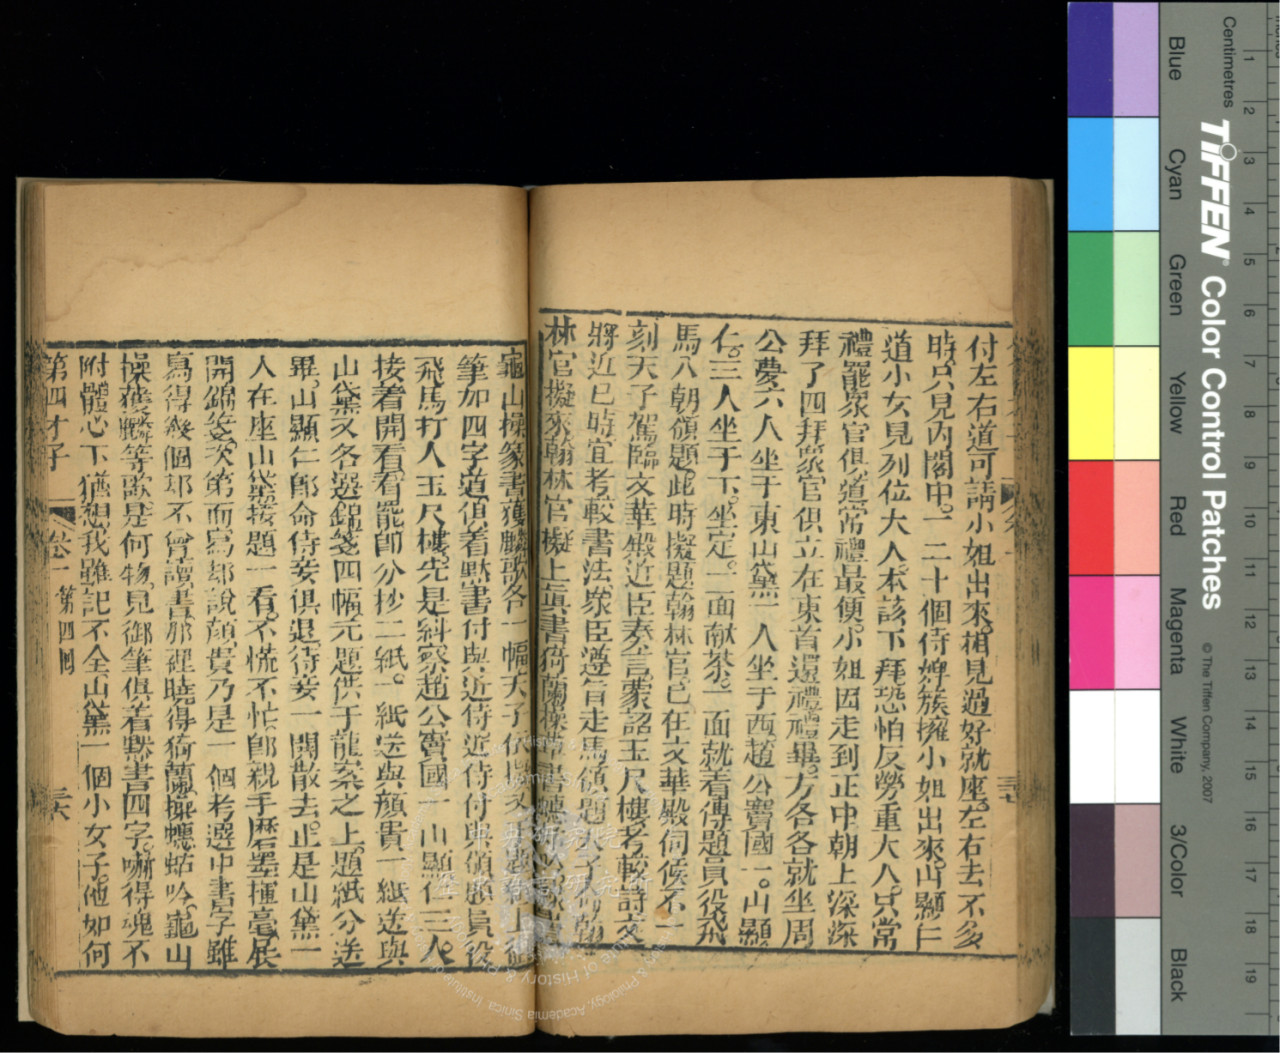 付左右道可請小姐出來相見過好就座左右去不多
時只見内閣中一二十個侍婢簇擁小姐出來山顯仁
道小女見列位大人本該下拜恐怕反勞重大人只常
禮罷衆官俱道常禮最便小姐因走到正中朝上深深
拜了四拜衆官俱立在東首還禮禮畢方各各就坐周
公夢六人坐于東山黛一人坐于西趙公寶國一山顯
仁三人坐于下坐定一面献茶一面就着傳題員役飛
馬入朝領題此時擬題翰林官已在文華殿伺候不一
刻天子駕臨文華殿近臣奏言蒙詔玉尺樓考較詩文
將近已時宜考較書法衆臣遵旨走馬領題天子命翰
林官擬來翰林官擬上眞書猗蘭操草書蟪蛄吟
龜山操篆書獲麟歌各一幅天子
筆加四字道俱着默書付與近侍近侍付與領題員役
飛馬打入玉尺樓先是糾察趙公寶國一山顯仁三人
接着開看看罷即分抄二紙一紙送與顔貴一紙送與
山黛又各選錦箋四幅元題供于龍案之上題紙分送
畢山顯仁即命侍妾俱退侍妾一閧散去止是山黛一
人在座山黛接題一看不慌不忙即親手磨墨揮毫展
開錦箋次第而寫却說顔貴乃是一個考選中書字雖
寫得幾個却不曾讀書那裡曉得猗蘭操蟪蛄吟龜山
操獲麟等歌是何物見御筆俱着默書四字嚇得魂不
附體心下猶想我雖記不全山黛一個小女子他如何
第四才子 卷一 第四囘 三六
Centimetres
1 2 3 4 5 6 7 8 9 10 11 12 13 14 15 16 17 18 19
TIFFEN Color Control Patches
© The Tiffen Company, 2007
Blue
Cyan
Green
Yellow
Red
Magenta
White
3/Color
Black